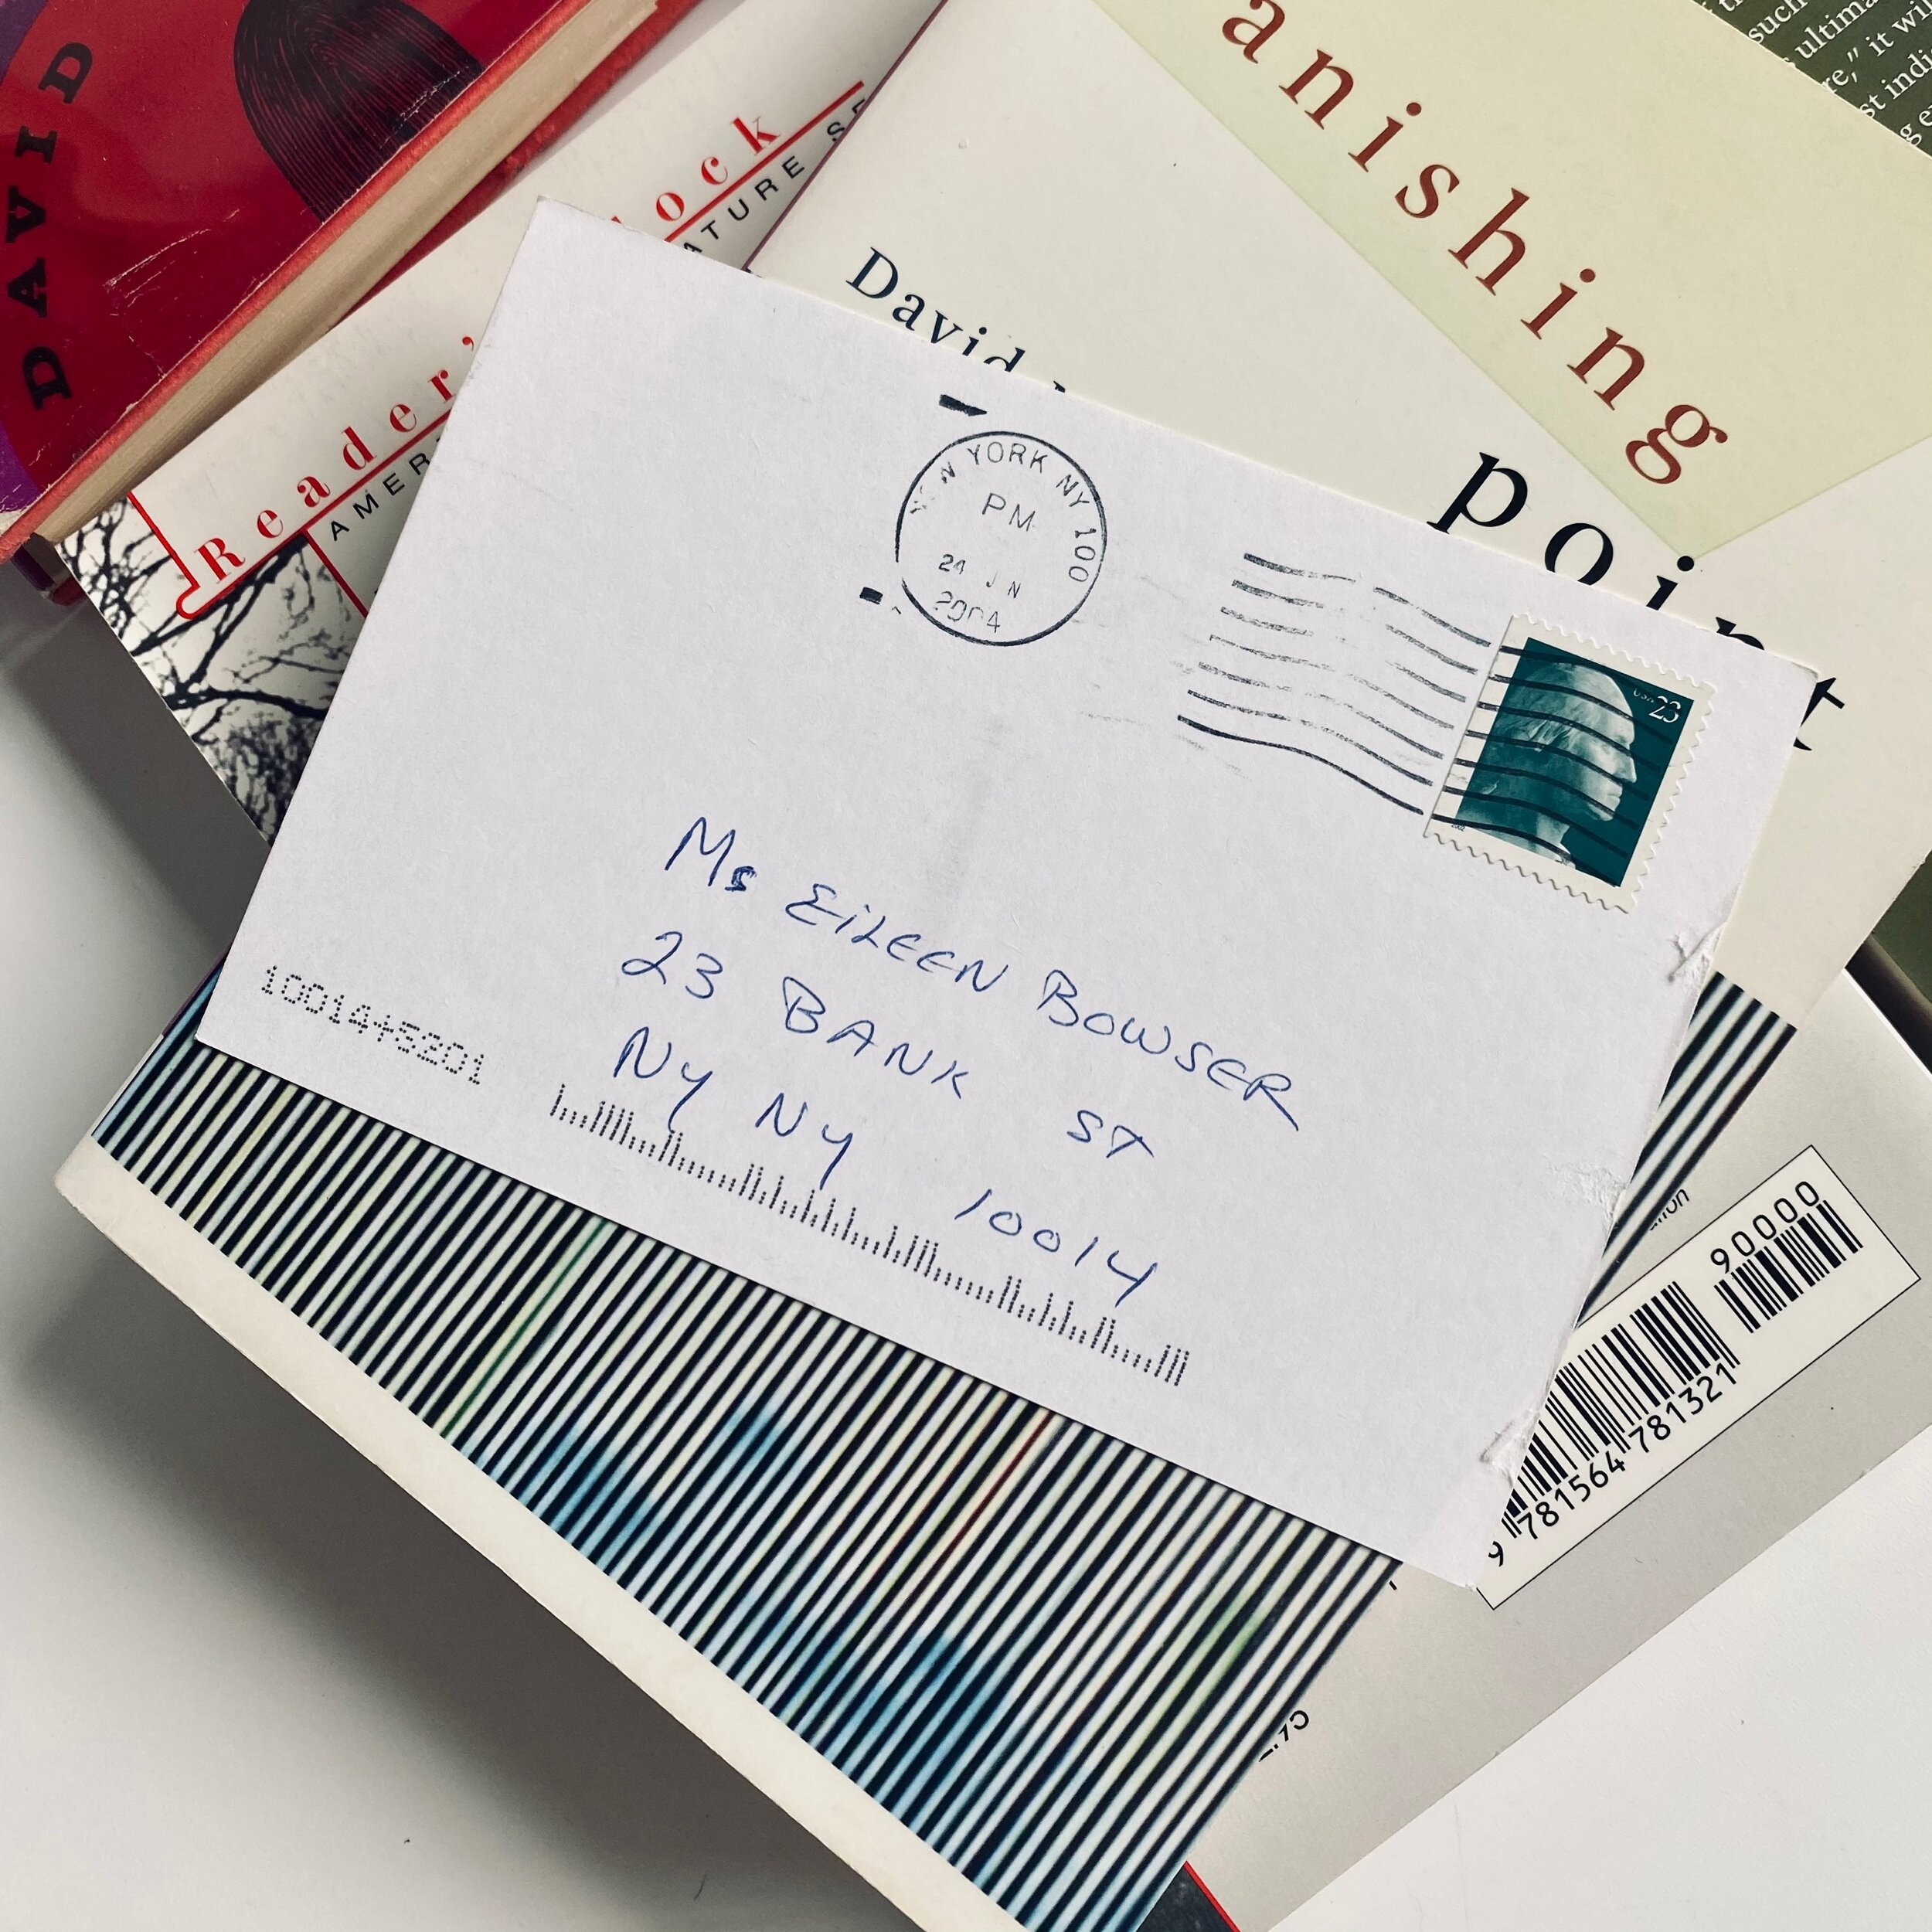 DAVID
Reader's
ock
AMER
ATURE S
such
ultima
re," it wil
st indi
anishing
point
David
NEW YORK NY 100
PM
24 JN
2004
USA 23
2002
Ms EILEEN BOWSER
23 BANK ST
NY NY 10014
10014+5201
90000
9 781564 781321